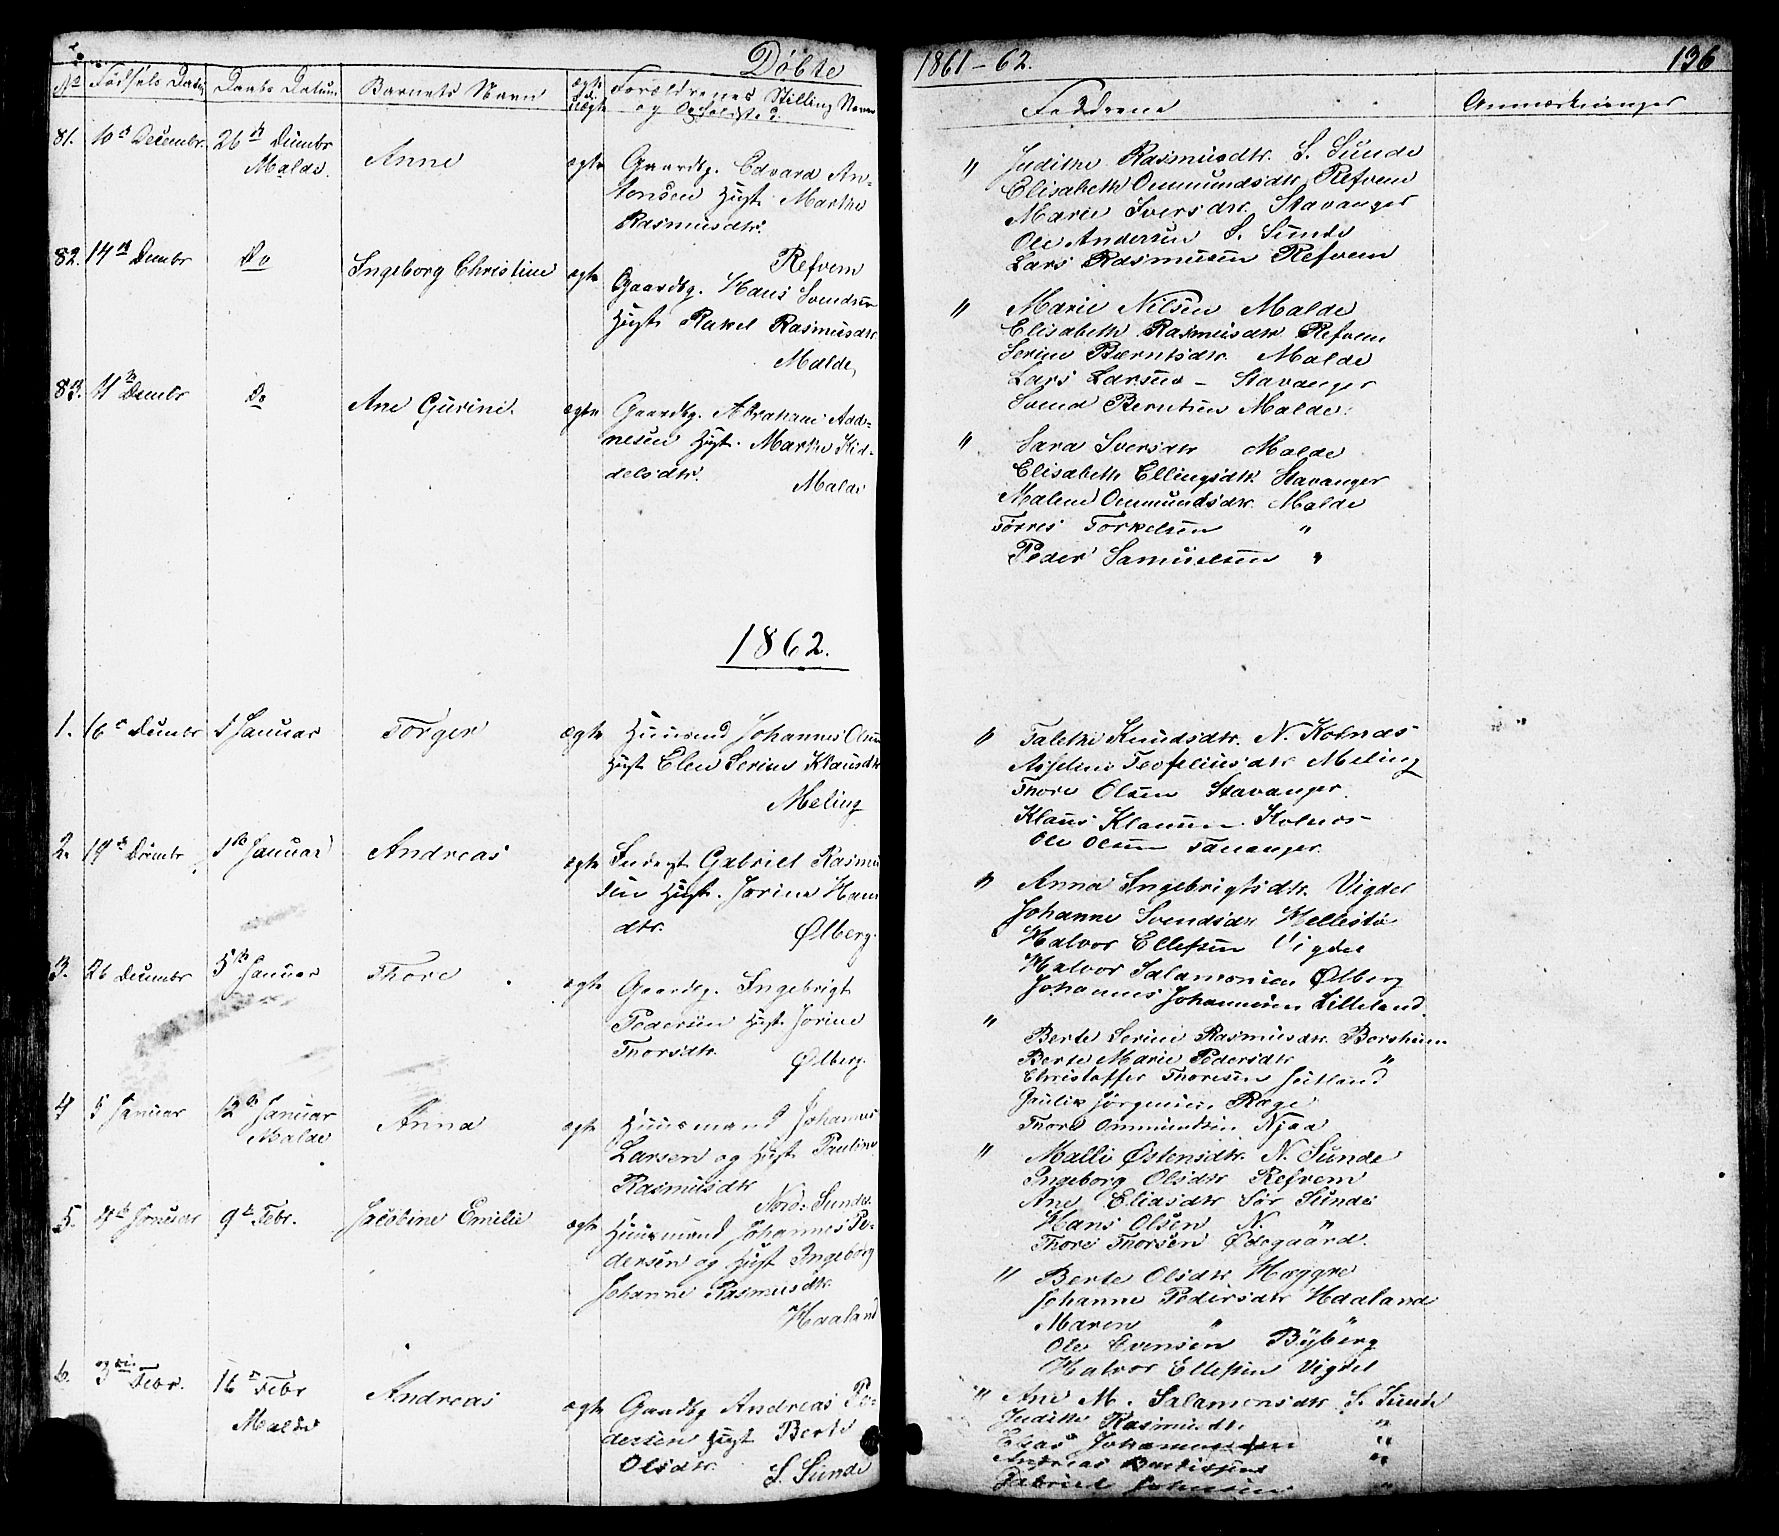 Döbte 1861-62. 136
No Födsels Datum Daabs Datum Barnets Navn ægte ell. uægte Forældrenes Stilling Navn og Opholdsted
Faddrene Anmærkninger
81. 10 Decembr. 26 Decmbr Malde. Anne ægte Gaardbg. Edvard An-
tonsen Hust. Marthe
Rasmusdtr.
Refvem
" Judithe Rasmusdtr. S. Sunde
Elisabeth Ommundsdtr Refvem
Marie Iversdtr. Stavanger
Ole Andersen S. Sunde
Lars Rasmusen Refvem
82. 14 Dcmbr Do Ingeborg Christine ægte Gaardbg. Hans Svendsen
Hust. Rakel Rasmusdtr
Malde
" Marie Nilsen Malde
Elisabeth Rasmusdtr Refvem
Serine Bærntsdtr. Malde
Lars Larsen - Stavanger
Svend Berntsen Malde.
83. Decmbr Do Ane Gurine. ægte Gaardbg. Abraham Aad-
nesen Hust. Marthe Kid-
delsdtr.
Malde
" Sara Iversdtr Malde
Elisabeth Ellingsdtr Stavanger
Malene Ommundsdtr. Malde
Törres Torkelsen "
Peder Samuelsen "
1862.
1. 16 Decmbr 1 Januar Torger ægte Huusmd Johannes Olsen
Hust Elen Serine Klausdtr
Meling
" Talethe Knudsdtr. N. Kolnæs
Teofeliusdtr Meling
Thore Olsen Stavanger.
Klaus Klausen Kolnes
Ole Olsen Tananger.
2. 19 Decmbr 1 Januar Andreas ægte Inderst Gabriel Rasmu
sen Hust. Jorine Hans
dtr.
Ølberg.
" Anna Ingebrigtsdtr. Vigdel
Johanne Svendsdtr Hellestø
Halvor Ellefsen Vigdel
Halvor Salamonsen Ølberg
Johannes Johannesen Lilleland.
3. 26 Decmbr 5 Januar Thore ægte Gaardbg. Ingebrigt
Pedersen Hust. Jorine
Thorsdtr.
Ølberg.
" Berte Serine Rasmusdtr. Borsheim
Berte Marie Pedersdtr "
Christoffer Thoresen Jaasund
Jörgensen Ræge
Thore Ommundsen Njaa
4 5 Januar 12 Januar Malde Anna ægte Huusmand Johannes
Larsen og Hust Pauline
Rasmusdtr
Nord-Sunde
" Malli Østensdtr. N. Sunde
Ingeborg Olsdtr Refvem
Ane Eliasdtr Sör Sunde
Hans Olsen N. "
Thore Thorsen Ødegaard.
5. Januar 9 Febr. Jacobine Emilie ægte Huusmand Johannes Pe-
dersen og Hust Ingeborg
Johanne Rasmusdtr.
Haaland
" Berte Olsdtr Hægge
Johanne Pedersdtr Haaland
Maren "
Ole Evensen Byberg
Halvor Ellefsen Vigdel
6. 3 Febr. 16 Febr Malde Andreas ægte Gaardbg Andreas Pe-
dersen Hust Berte
Olsdtr.
S. Sunde
" Ane M. Salamonsdtr S. Sunde
Judithe Rasmusdtr. "
Elias Johannessen "
Andreas "
Gabriel Johnsen "